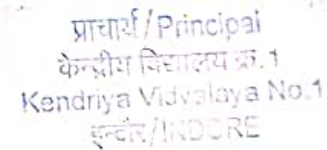 प्राचार्य/Principal
केन्द्रीय विद्यालय क्र.1
Kendriya Vidyalaya No.1
इन्दौर/INDORE